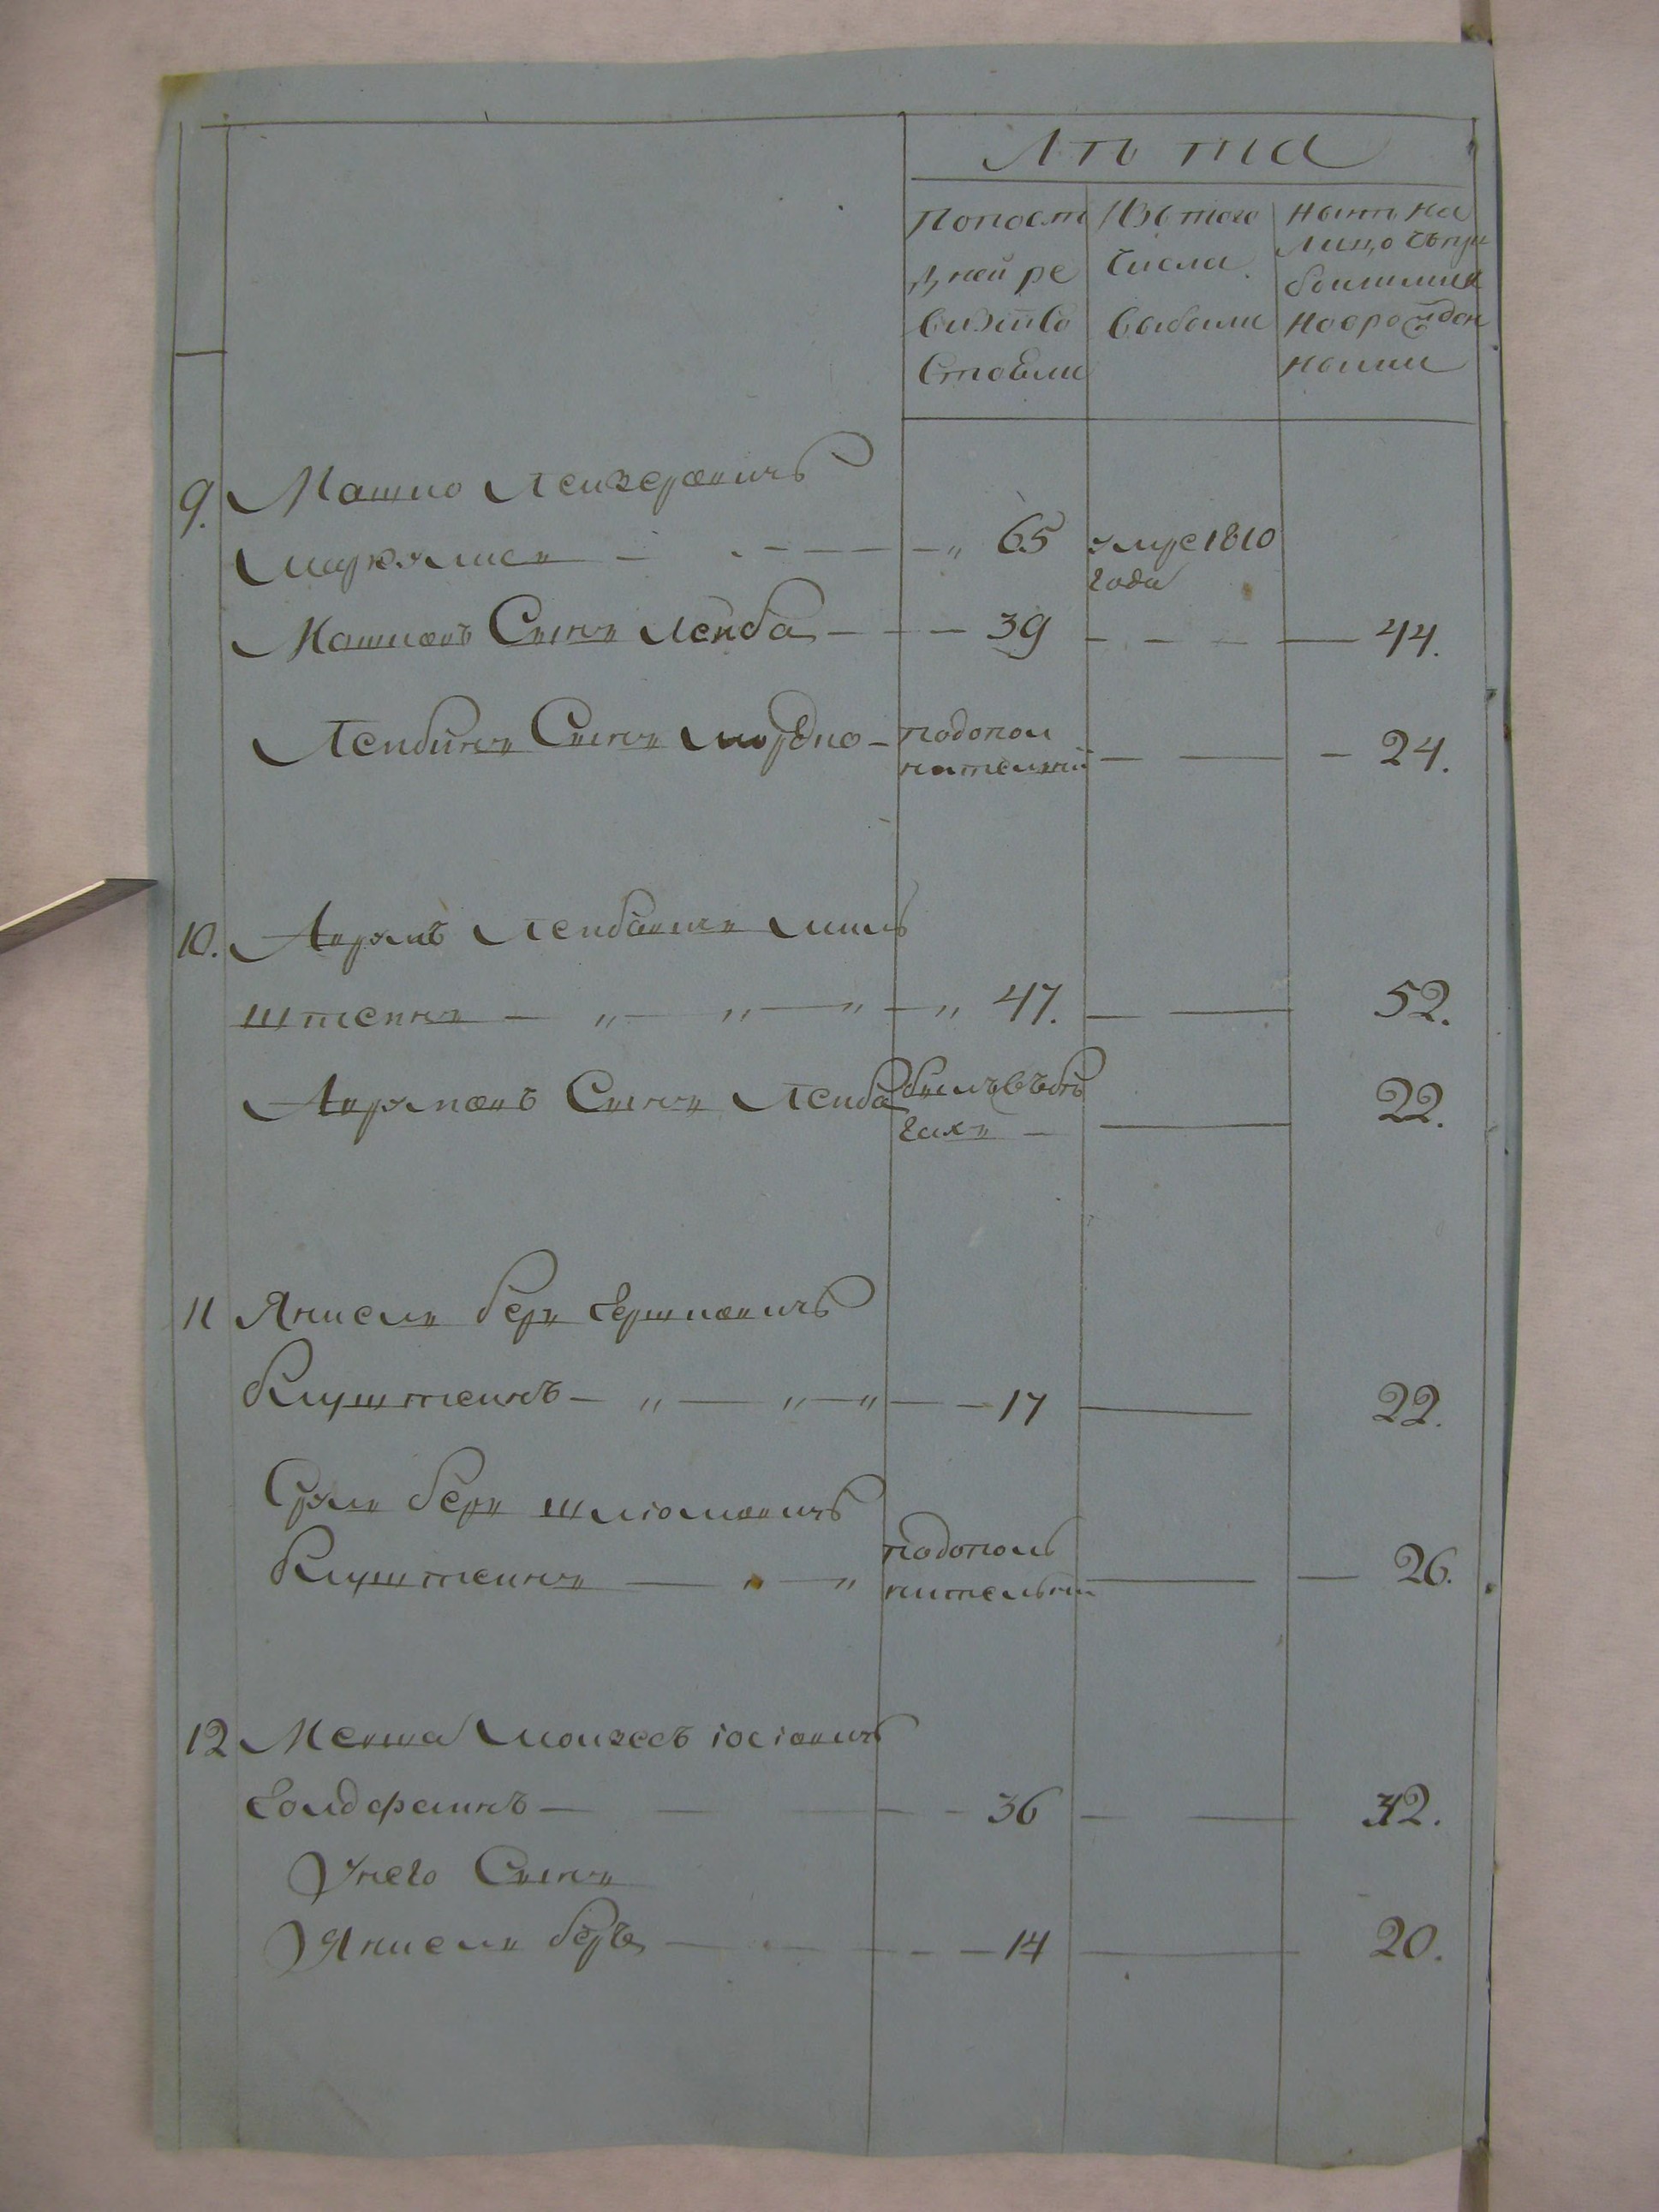 Лѣта
Попослѣ
дней ре
визіи со
стояли
Изъ того
числа
выбыли
Нынѣ на
лицо съ при
былыми и
новорожден
ными
9. Мошко Лейзеровичъ
65 умре 1810
года
Мошковъ Сынъ Лейба 39 44.
Лейбинъ Сынъ Мордко подопол
нительній 24.
10. Аврумъ Лейбовичъ Миль
штейнъ 47. 52.
Аврумовъ Сынъ Лейба былъ въ бѣ
гахъ 22.
11 Янкель Беръ Гершковичъ
Клуштейнъ 17 22.
Сруль Беръ Шліомовичъ
Клуштейнъ подополь
нительни 26.
12 Мойзесъ Іосіовичъ
Голдфейнъ 36
Унего Сынъ
Янкель Беръ 14 20.